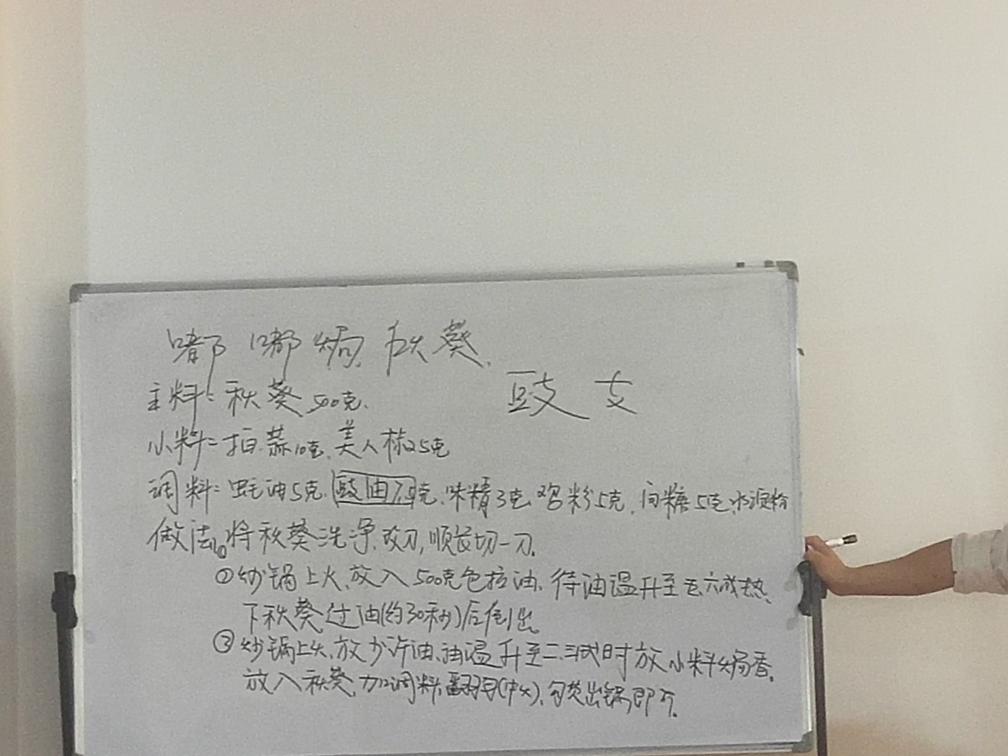 嘟嘟焗秋葵.
豉 支
主料: 秋葵500克.
小料: 拍蒜10克.美人椒25克
调料: 蚝油5克.豉油75克.味精3克 鸡粉5克.白糖5克 水淀粉
做法: 将秋葵洗净,改刀,顺长切一刀.
②炒锅上火,放入500克色拉油,待油温升至五六成热,
下秋葵过油(约30秒)后倒出
③炒锅上火,放少许油,油温升至二三成时放小料焗香,
放入秋葵,加调料,翻(中火),勾芡出锅即可.